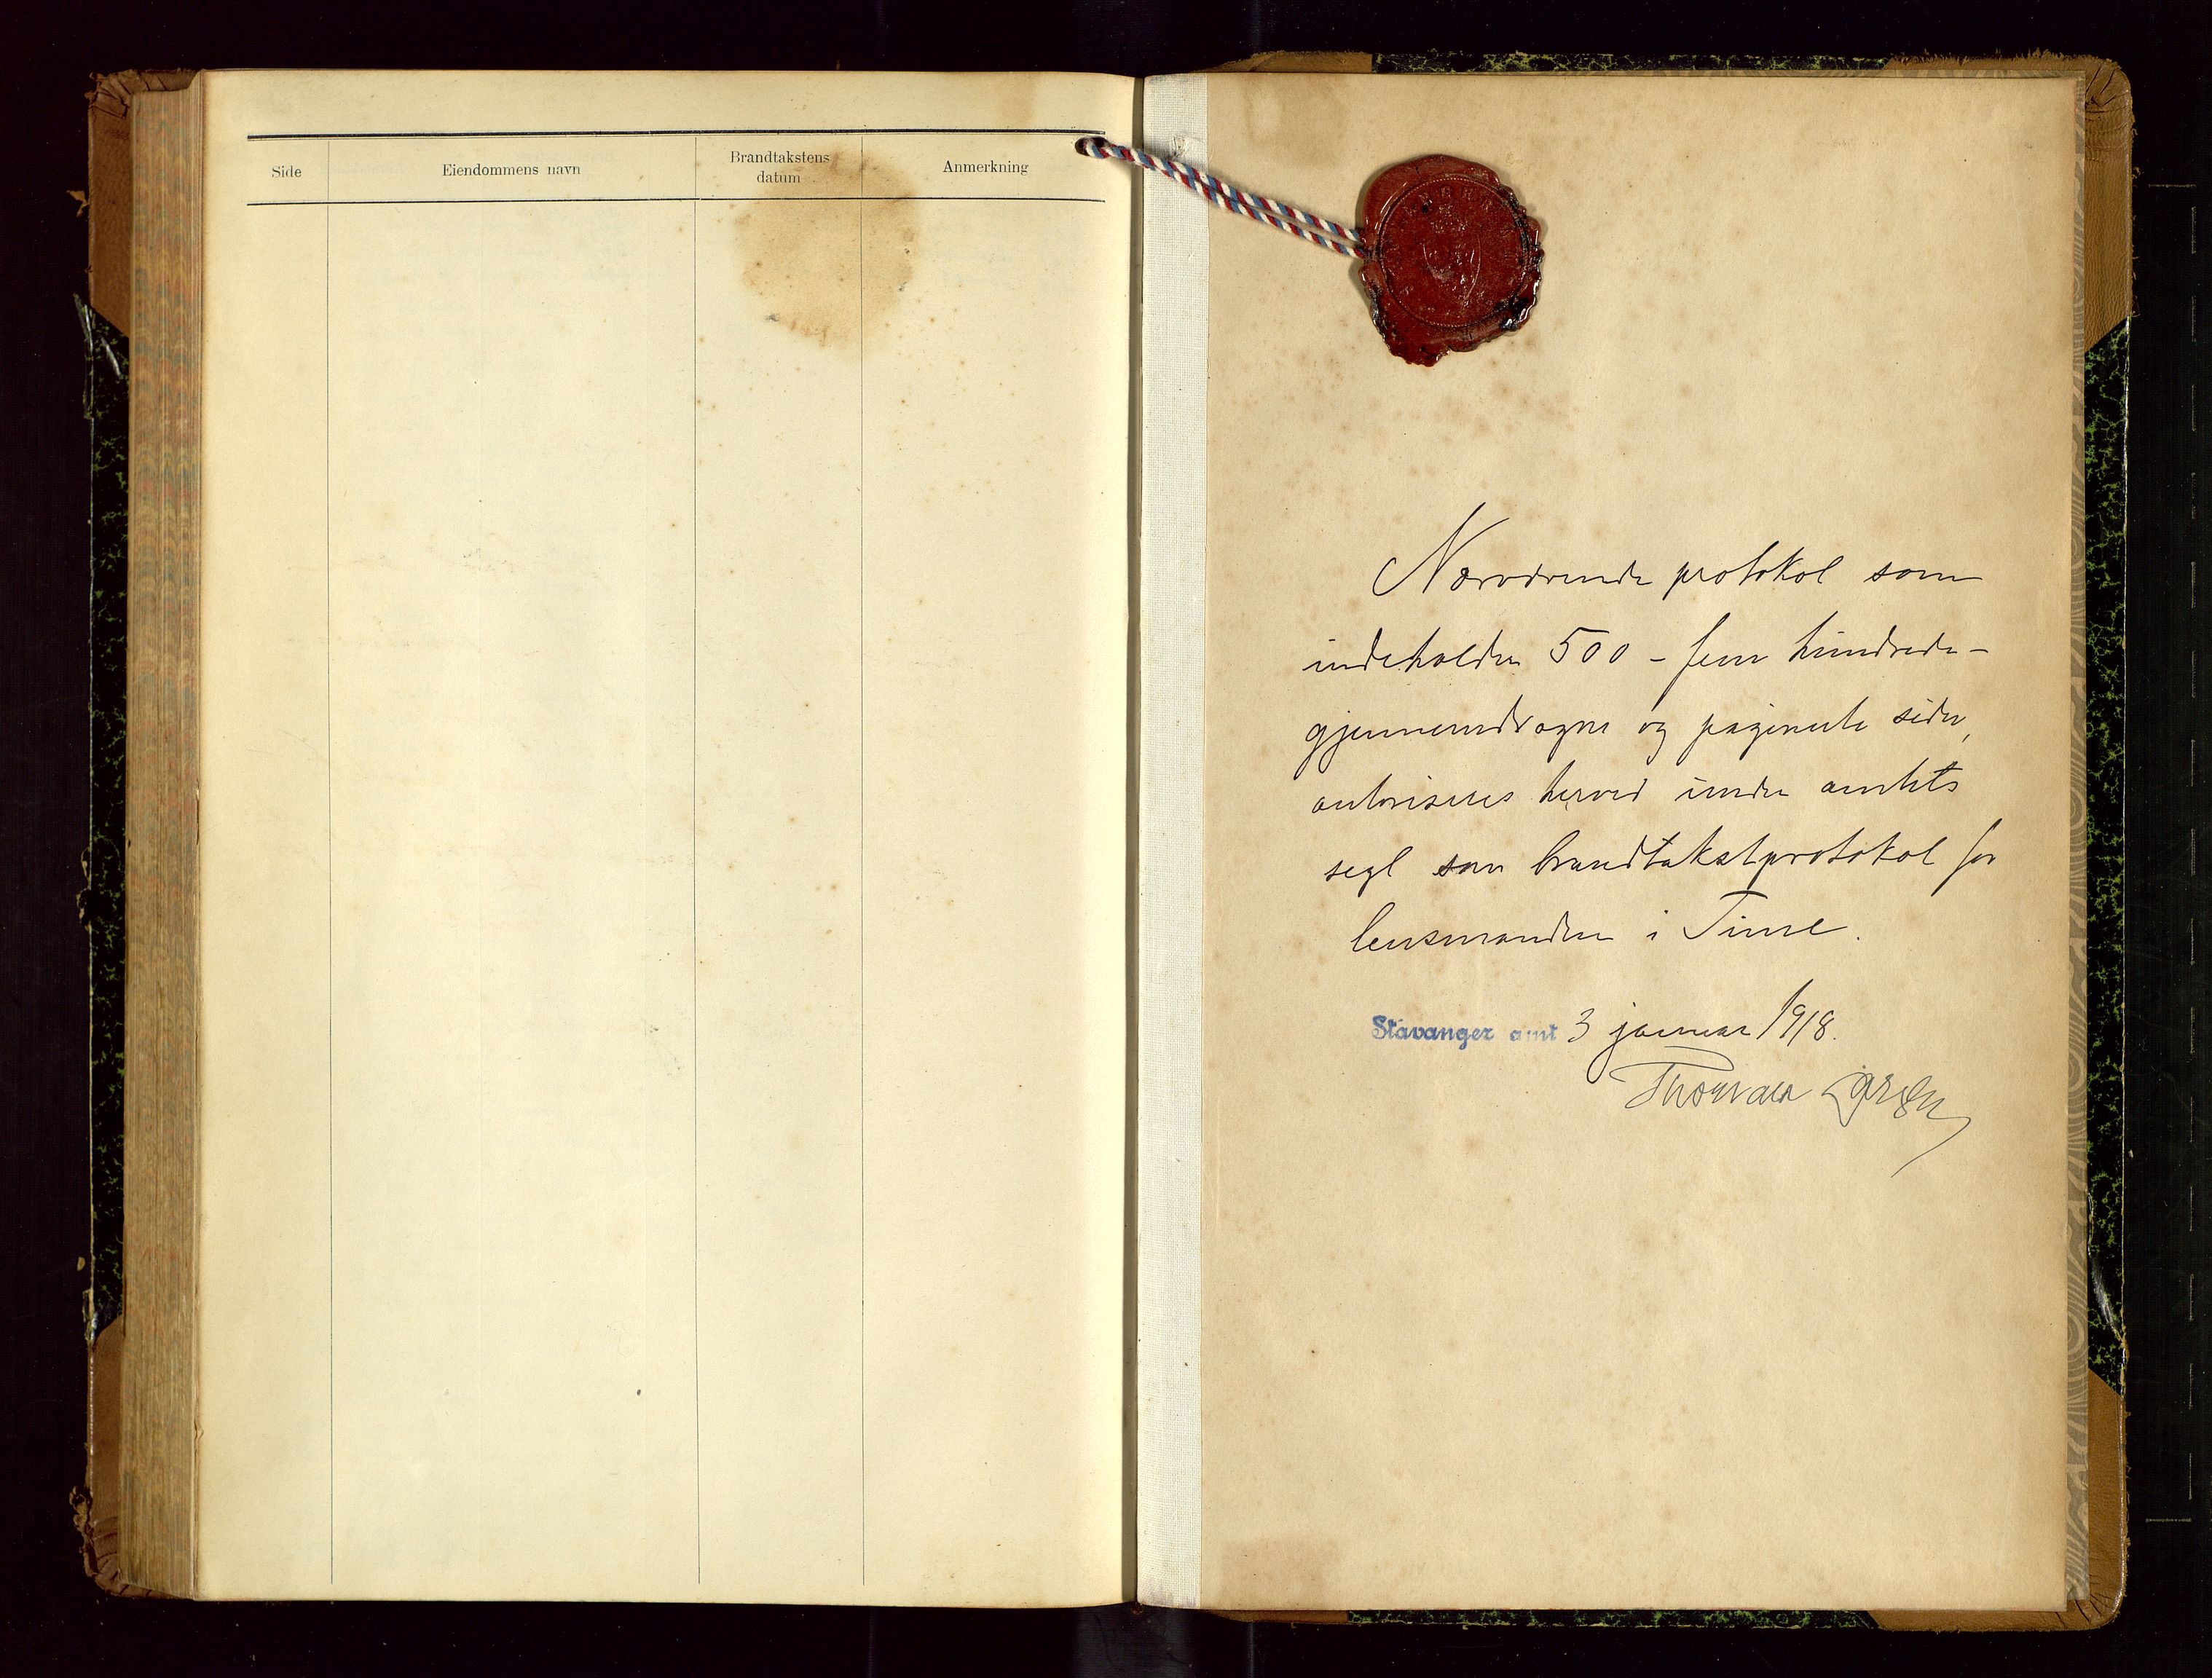 Side
Eiendommens navn
Brandtakstens
datum
Anmerkning
Nærværende protokol som
indeholder 500 - fem hundrede -
gjennemdragne og paginerte sider,
autoriseres herved under amtets
segl som brandtakstprotokol for
lensmanden i Time.
Stavanger amt 3 januar 1918.
Thorvald Larsen